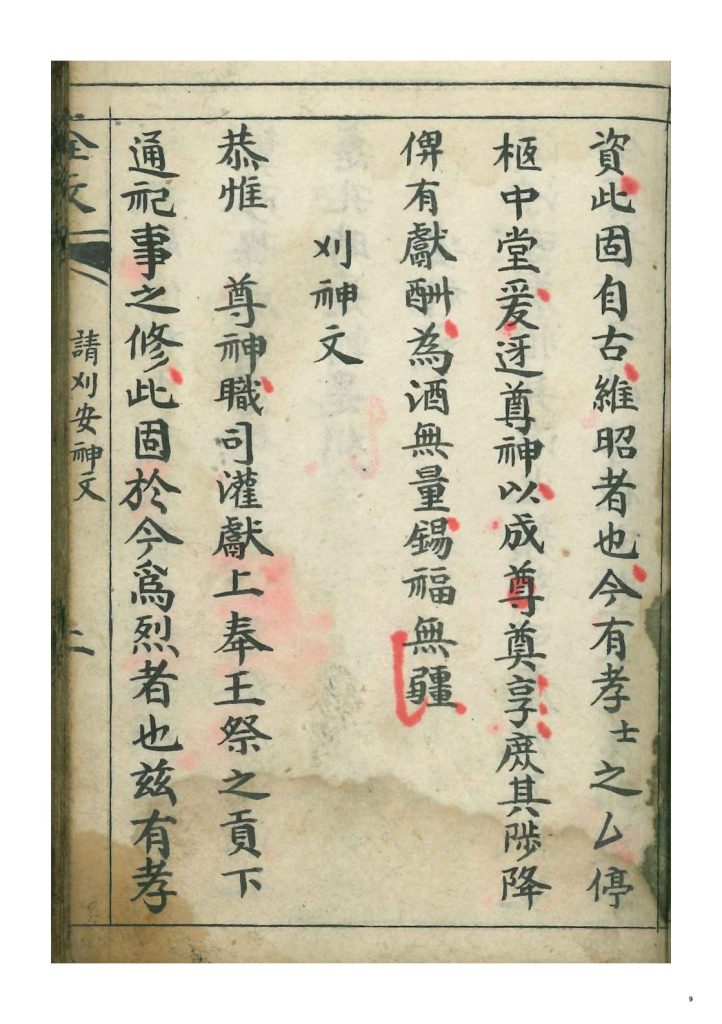 資此固自古維昭者也今有孝士之厶停
柩中堂爰迓尊神以成尊奠享庶其陟降
俾有獻酬為酒無量錫福無疆
刈神文
恭惟 尊神職司灌獻上奉王祭之貢下
通祀事之修此固於今爲烈者也兹有孝
全文
請刈安神文
二
9